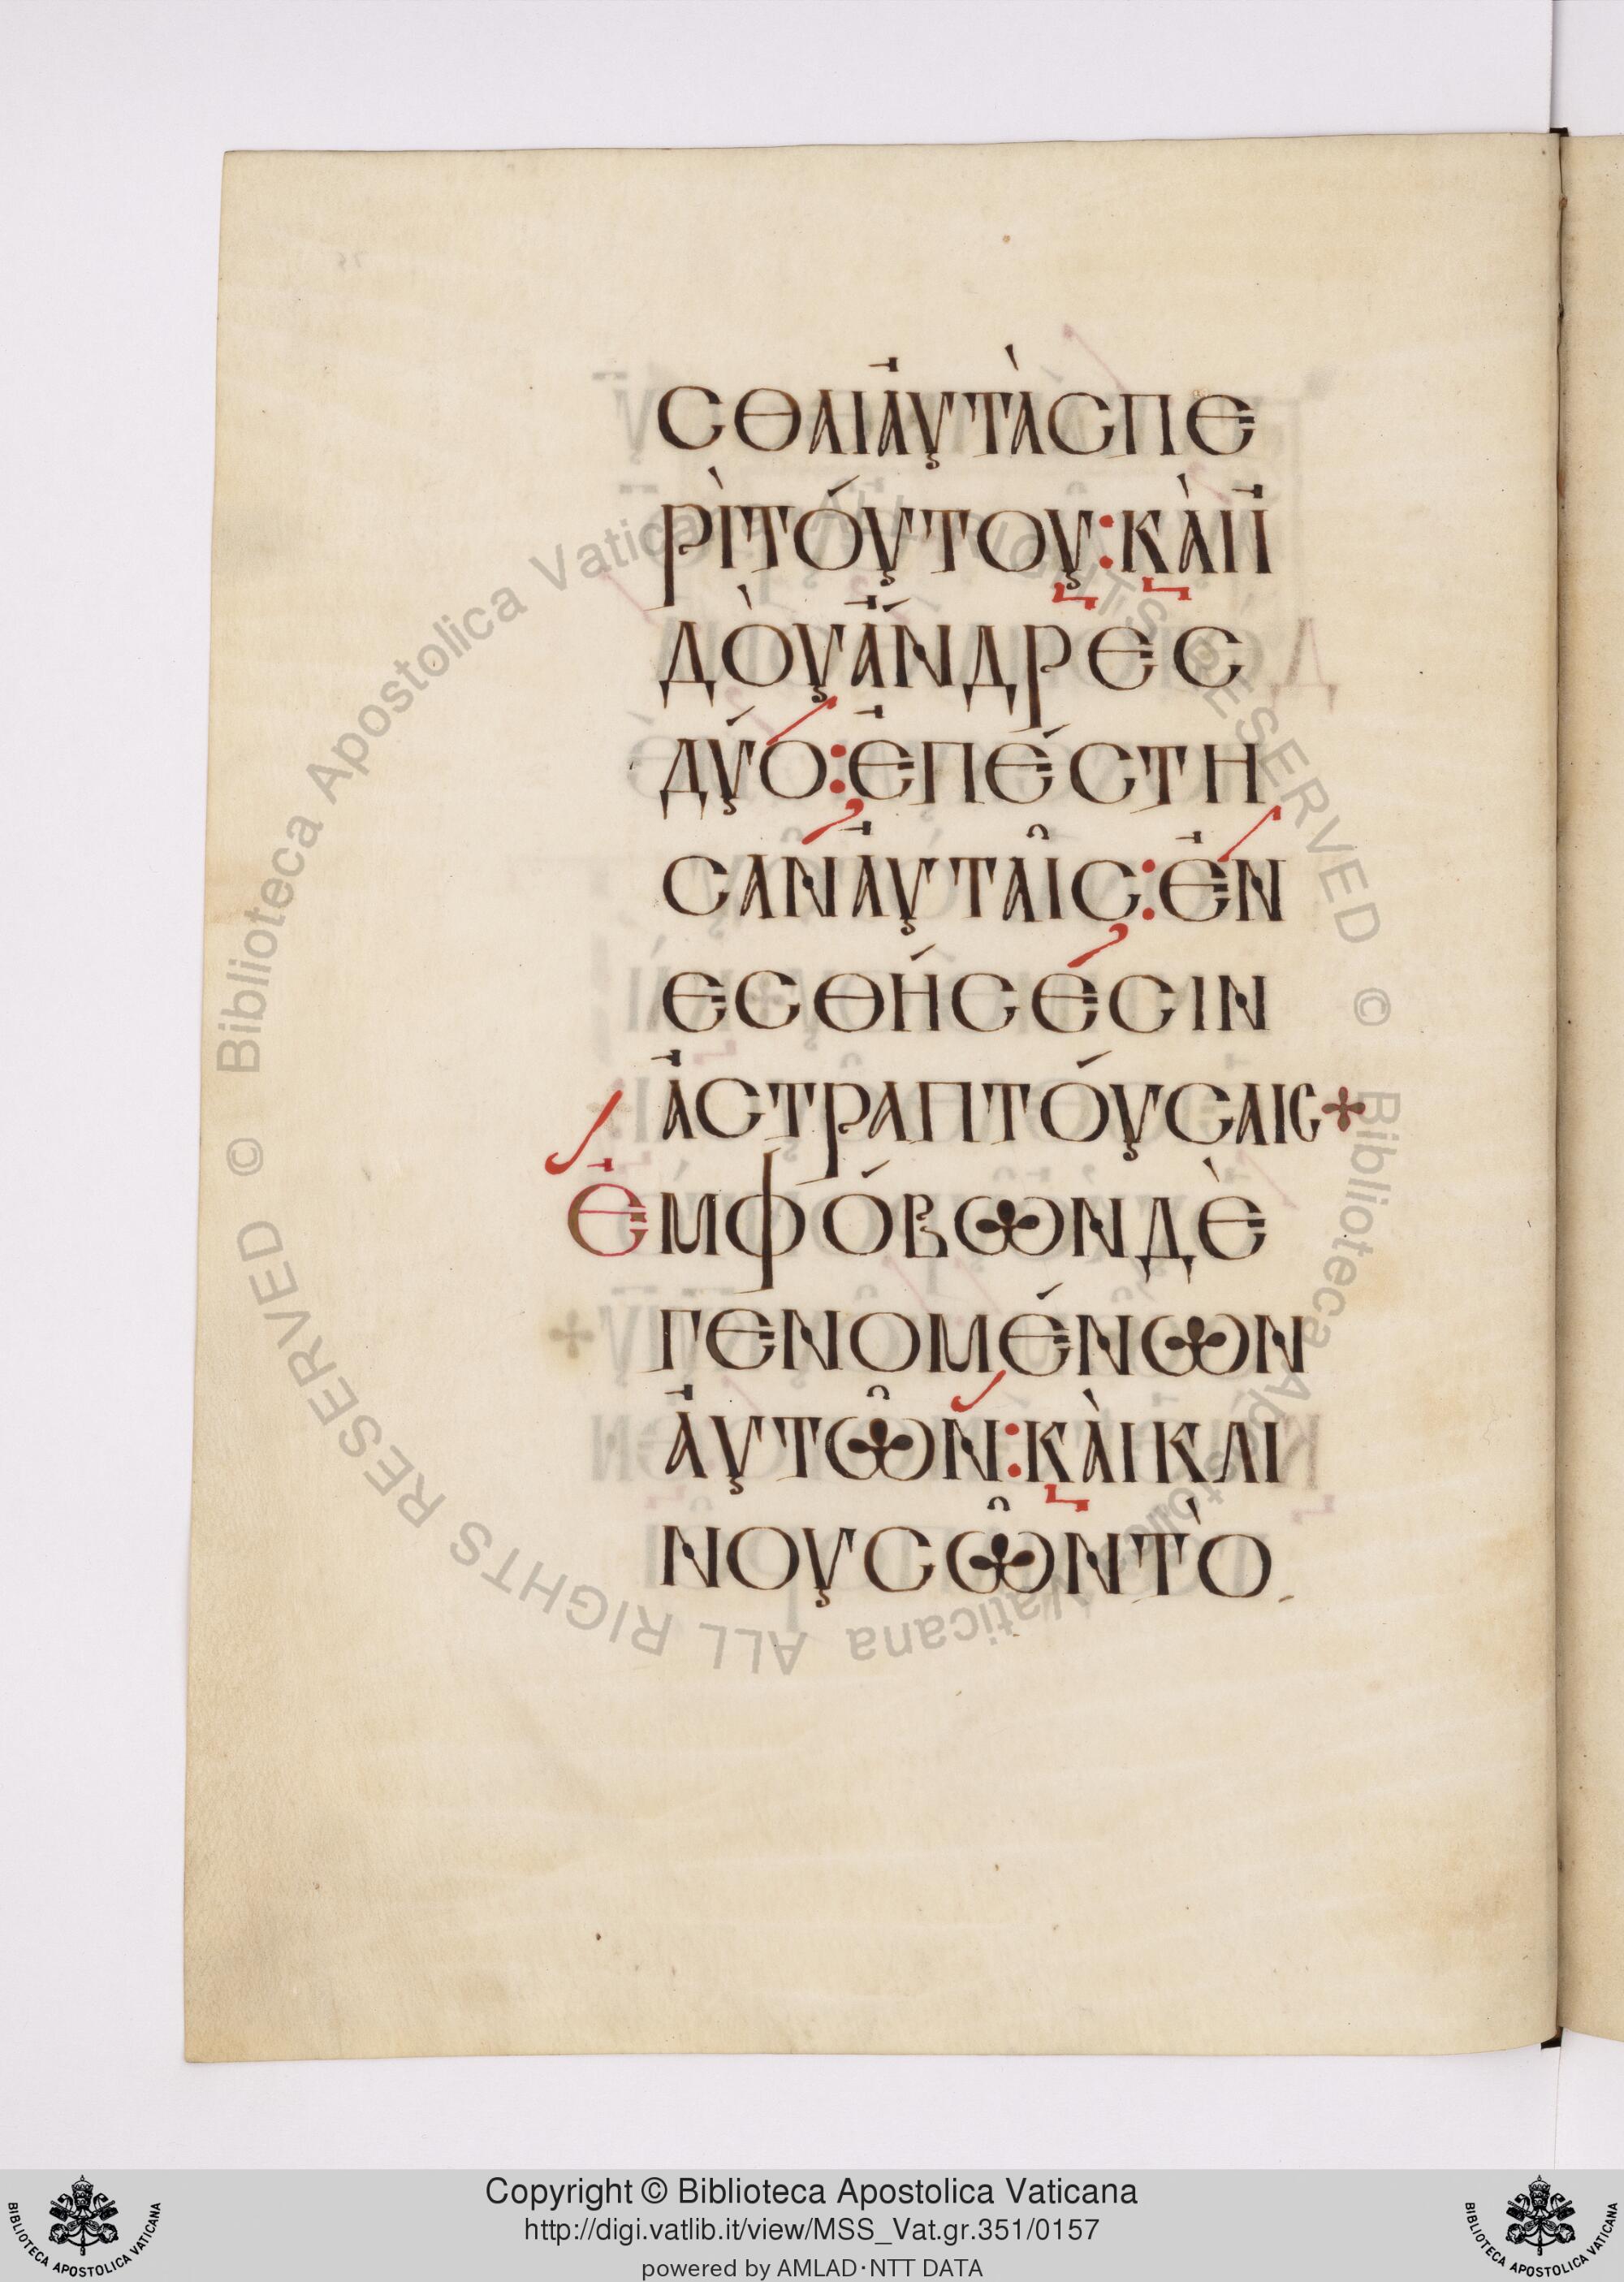 СΘΑΙἈΥΤᾺСΠΕ
ΡῚΤΌΥΤΟΥ:ΚᾺΙἸ
ΔῸΥἌΝΔΡΕС
ΔΎΟ:ἘΠΈСΤΗ
СΑΝἈΥΤΑ͂ΙС:ἘΝ
ΕСΘΉСΕСΙΝ
ἈСΤΡΑΠΤΌΥСΑΙС+
ἘΜΦΌΒΩΝΔῈ
ΓΕΝΟΜΈΝΩΝ
ἈΥΤΩ͂Ν:ΚᾺΙΚΛΙ
ΝΟΥСΩ͂ΝΤῸ
© Biblioteca Apostolica Vaticana ALL RIGHTS RESERVED © Biblioteca Apostolica Vaticana ALL RIGHTS RESERVED
Copyright © Biblioteca Apostolica Vaticana
http://digi.vatlib.it/view/MSS_Vat.gr.351/0157
powered by AMLAD·NTT DATA
BIBLIOTECA APOSTOLICA VATICANA
BIBLIOTECA APOSTOLICA VATICANA